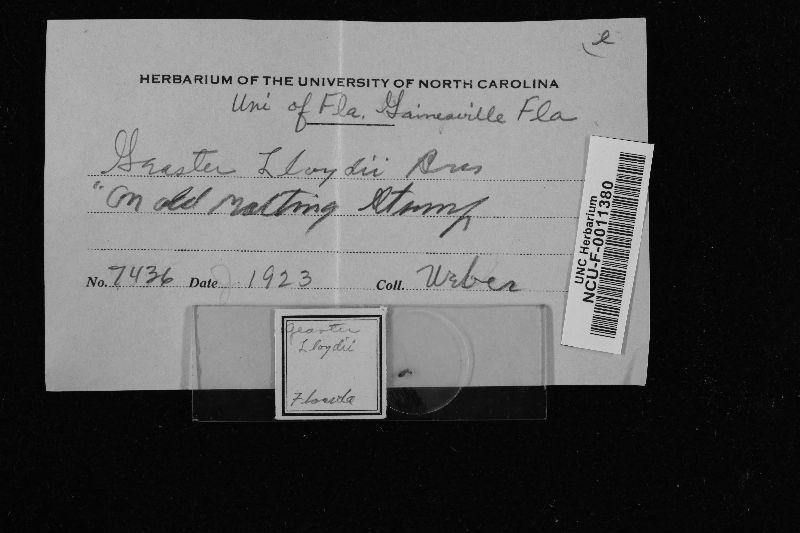 e
HERBARIUM OF THE UNIVERSITY OF NORTH CAROLINA
Uni of Fla. Gainesville Fla
Geaster Lloydii Bres
"On old rotting Stump
No. 7436 Date 1923 Coll. Weber
UNC Herbarium
NCU-F-0011380
Geaster
Lloydii
Florida